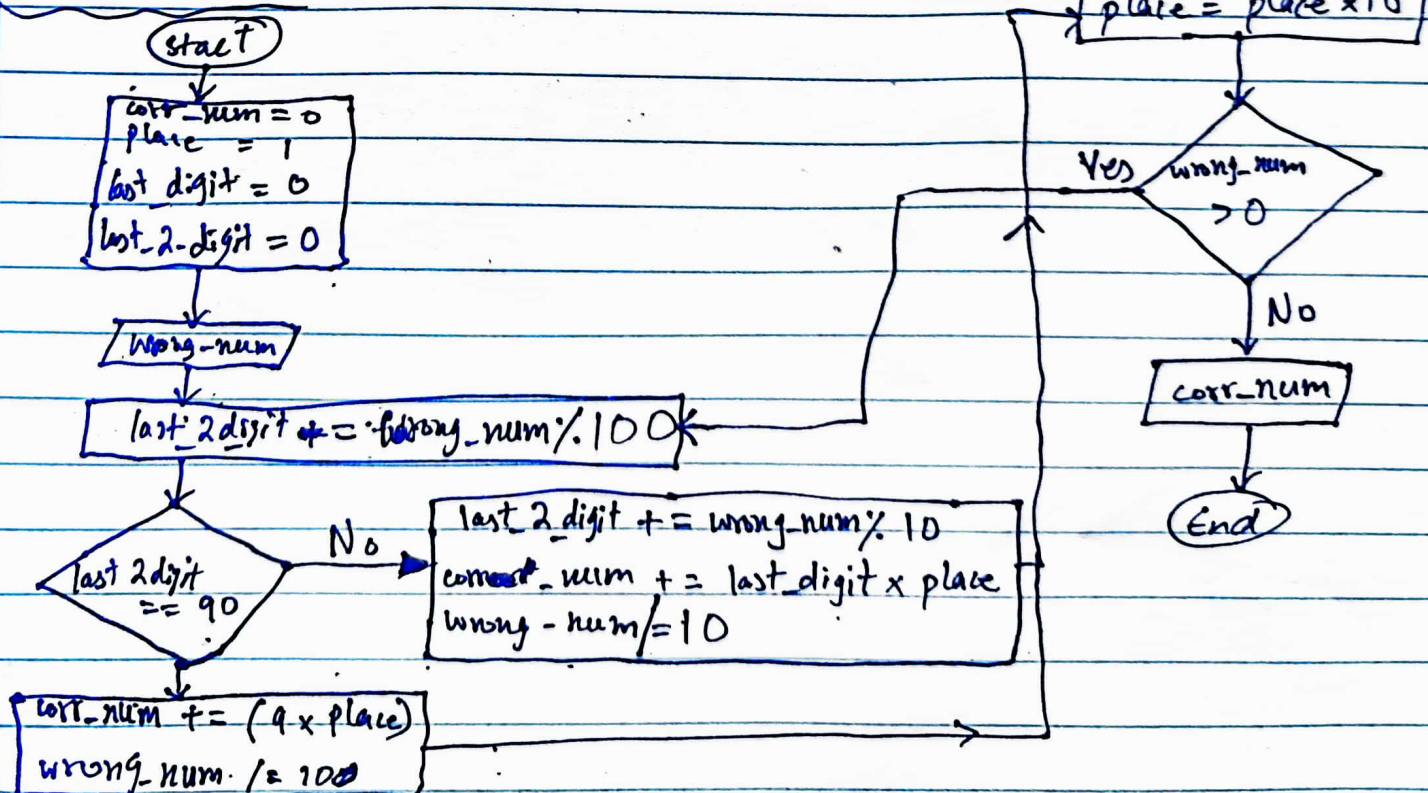 start
corr_num = 0
place = 1
last_digit = 0
last_2_digit = 0
wrong-num
last_2digit = wrong_num % 100
last 2digit
== 90
No
last_2_digit += wrong_num % 10
corr_num += last_digit x place
wrong-num /= 10
corr_num += (9 x place)
wrong_num /= 100
place = place x 10
wrong_num
> 0
Yes
No
corr_num
End